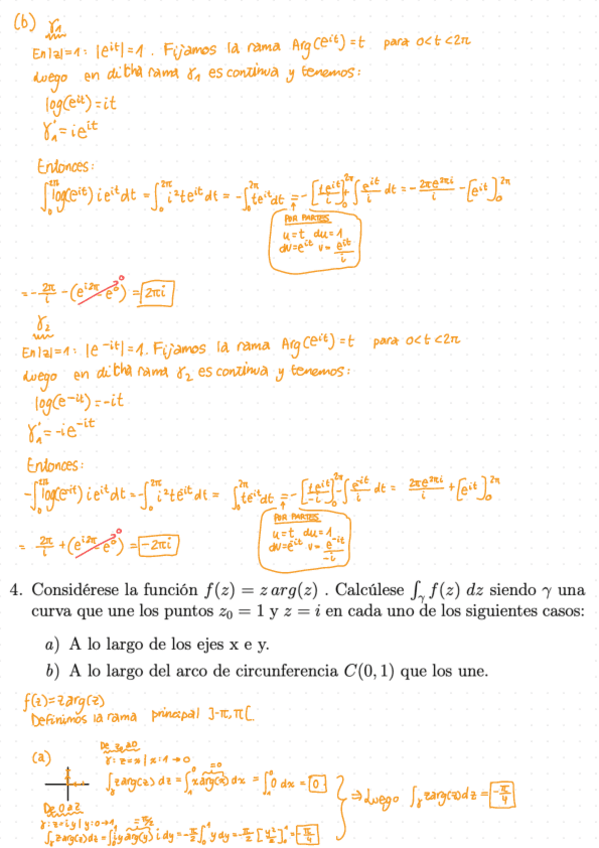 (b) γ₁
En |z|=1: |e^{it}|=1. Fijamos la rama Arg(e^{it})=t para 0<t<2π
Luego en dicha rama γ₁ es continua y tenemos:
log(e^{it})=it
γ₁'=ie^{it}
Entonces:
∫₀^{2π} log(e^{it}) ie^{it} dt = ∫₀^{2π} i²te^{it} dt = -∫₀^{2π} te^{it} dt = -[te^{it}/i]₀^{2π} + ∫₀^{2π} e^{it}/i dt = -2πe^{2πi}/i - [e^{it}]₀^{2π}
POR PARTES
u=t du=1
dv=e^{it} v=e^{it}/i
= -2π/i - (e^{i2π} - e^0) = 2πi
γ₂
En |z|=1: |e^{-it}|=1. Fijamos la rama Arg(e^{it})=t para 0<t<2π
Luego en dicha rama γ₂ es continua y tenemos:
log(e^{-it})=-it
γ₁'=-ie^{-it}
Entonces:
-∫₀^{2π} log(e^{it}) ie^{it} dt = -∫₀^{2π} i²te^{it} dt = ∫₀^{2π} te^{it} dt = -[te^{it}/-i]₀^{2π} - ∫₀^{2π} e^{it}/-i dt = 2πe^{2πi}/i + [e^{it}]₀^{2π}
POR PARTES
u=t du=1
dv=e^{it} v=e^{-it}/-i
= 2π/i + (e^{i2π} - e^0) = -2πi
4. Considérese la función f(z) = z arg(z) . Calcúlese ∫_γ f(z) dz siendo γ una
curva que une los puntos z₀ = 1 y z = i en cada uno de los siguientes casos:
a) A lo largo de los ejes x e y.
b) A lo largo del arco de circunferencia C(0, 1) que los une.
f(z)=zarg(z)
Definimos la rama principal ]-π,π[
(a)
γ: z=x | x:1→0
∫_γ zarg(z) dz = ∫₁⁰ xarg(x) dx = ∫₁⁰ 0 dx = 0
=0
⇒ Luego ∫_γ zarg(z)dz = -π/4
γ: z=iy | y:0→1
=π/2
∫_γ zarg(z)dz = ∫₀¹ iyarg(y) i dy = -π/2 ∫₀¹ y dy = -π/2 [y²/2]₀¹ = -π/4